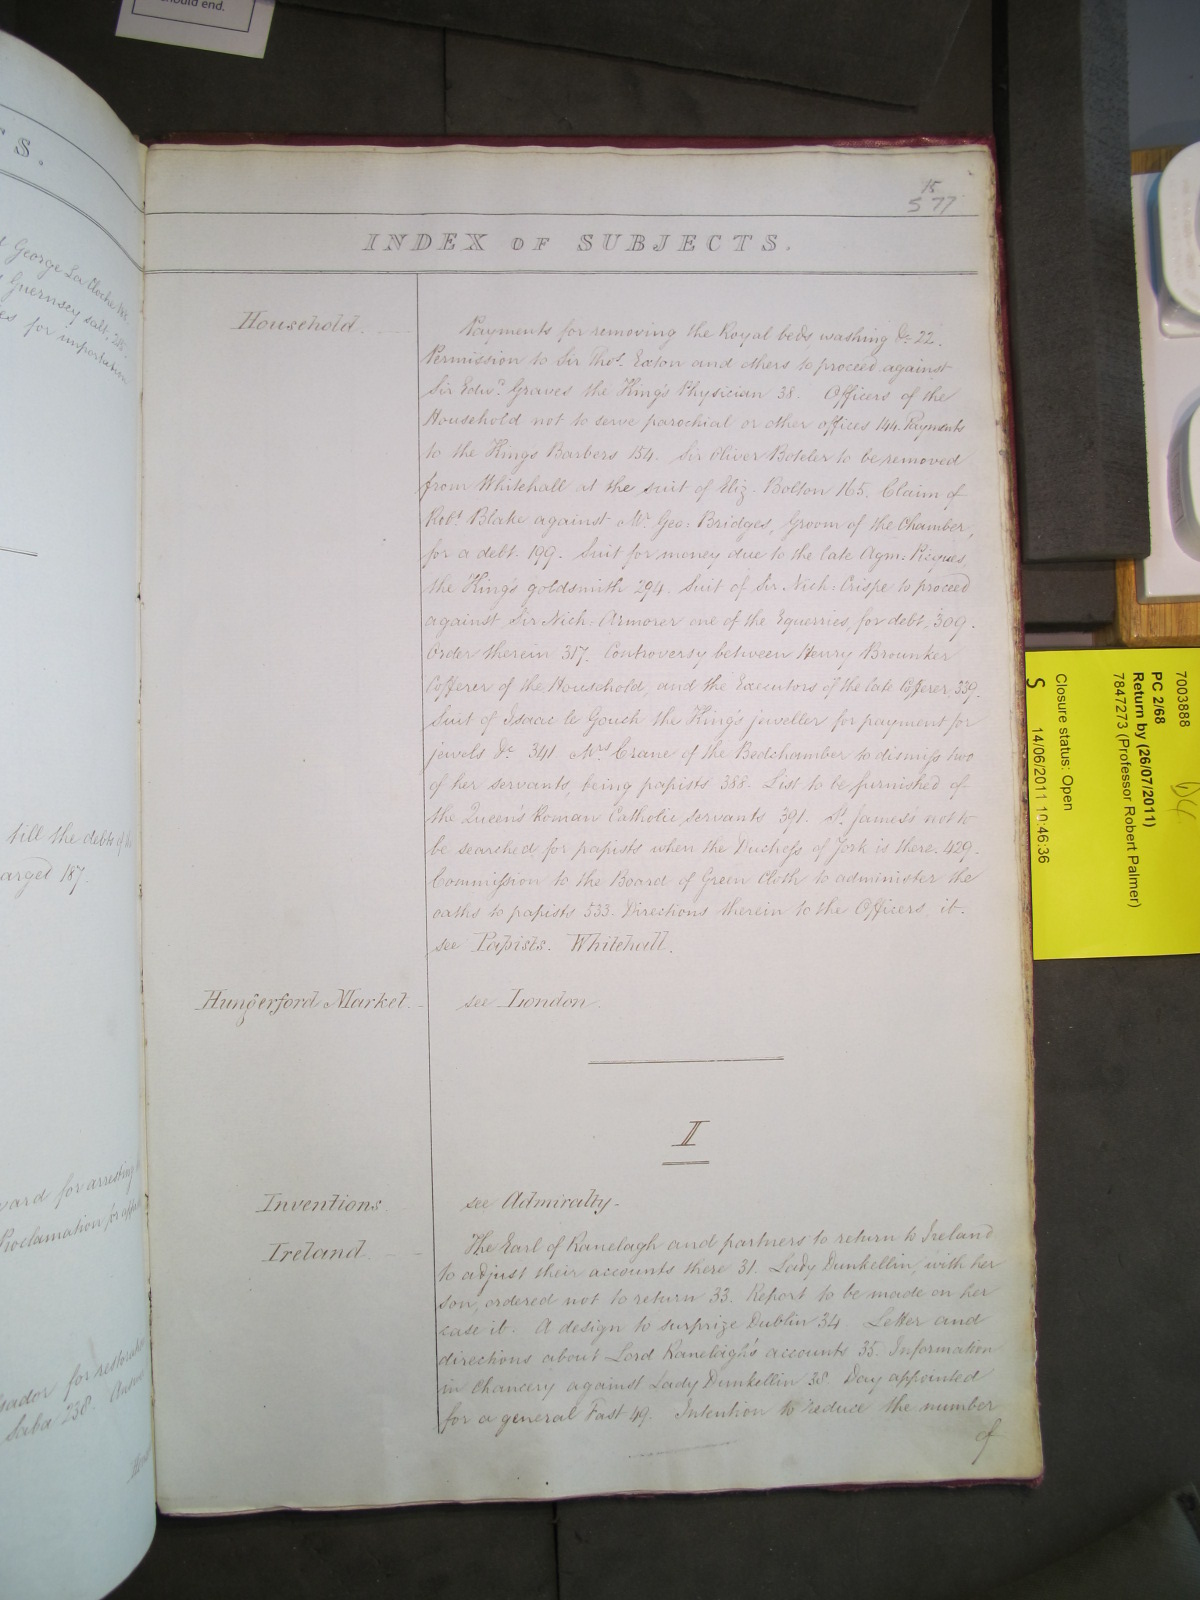 should end.
TS.
George La Cloche
Guernsey salt
for importation
till the debts of
arget 187.
ward for arresting
Proclamation for
sador for restoration
Saba 238.
15
577
INDEX OF SUBJECTS.
Household.
Payments for removing the Royal beds washing &c. 22.
Permission to Sir Thos. Exton and others to proceed against
Sir Edwd. Graves the King's Physician 38. Officers of the
Household not to serve parochial or other offices 144. Payments
to the King's Barbers 154. Sir Oliver Boteler to be removed
from Whitehall at the suit of Eliz. Bolton 165. Claim of
Robt. Blake against Mr. Geo: Bridges, Groom of the Chamber,
for a debt. 199. Suit for money due to the late Agm: Picques,
the King's goldsmith 294. Suit of Sir Nich: Crispe to proceed
against Sir Nich: Armorer one of the Equerries, for debt, 309.
Order therein 317. Controversy between Henry Brounker
Cofferer of the Household, and the Executors of the late Cofferer, 339.
Suit of Isaac le Gouch the King's jeweller for payment for
jewels &c. 341. Mrs. Crane of the Bedchamber to dismiss two
of her servants, being papists 388. List to be furnished of
the Queen's Roman Catholic servants 391. St. James's not to
be searched for papists when the Duchess of York is there. 429.
Commission to the Board of Green Cloth to administer the
oaths to papists 533. Directions therein to the Officers, it.
see Papists. Whitehall.
Hungerford Market.
see London.
I
Inventions
see Admiralty.
Ireland
The Earl of Ranelagh and partners to return to Ireland
to adjust their accounts there 31. Lady Dunkellin, with her
son, ordered not to return 33. Report to be made on her
case it. A design to surprize Dublin 34. Letter and
directions about Lord Ranelagh's accounts 35. Information
in Chancery against Lady Dunkellin 38. Day appointed
for a general Fast 49. Intention to reduce the number
of
7003888
PC 2/68
Return by (26/07/2011)
7847273 (Professor Robert Palmer)
Closure status: Open
S 14/06/2011 10:46:36